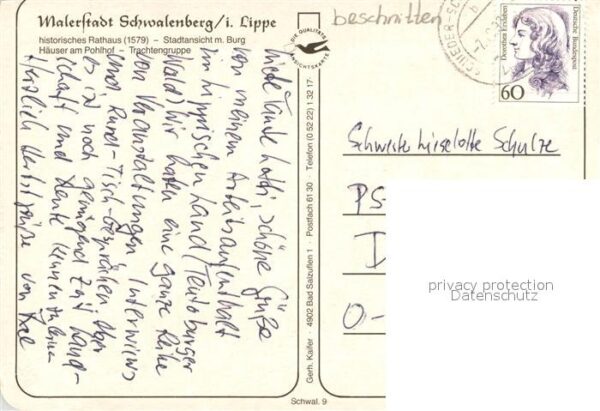 Malerstadt Schwalenberg/i. Lippe
historisches Rathaus (1579) – Stadtansicht m. Burg
Häuser am Pohlhof – Trachtengruppe
DIE QUALITÄTS
ANSICHTSKARTE
beschnitten
SCHIEDER-SC
b
Dorothea Erxleben
Deutsche Bundespost
60
Liebe Tante Lotti, schöne Grüße
von meinem Arbeitsaufenthalt
im lippischen Land (Teutoburger
Wald) Wir haben eine ganze Reihe
von Veranstaltungen, Interviews
und Rund-Tisch-Gesprächen aber
es ist noch genügend Zeit Land-
schaft und Leute kennenzulernen
Herzlich
grüße von
Gerh. Kaifer · 4902 Bad Salzuflen 1 · Postfach 61 30 · Telefon (0 52 22) 1 32 17
Schwester Liselotte Schulze
PS-
D
O-
privacy protection
Datenschutz
Schwal. 9